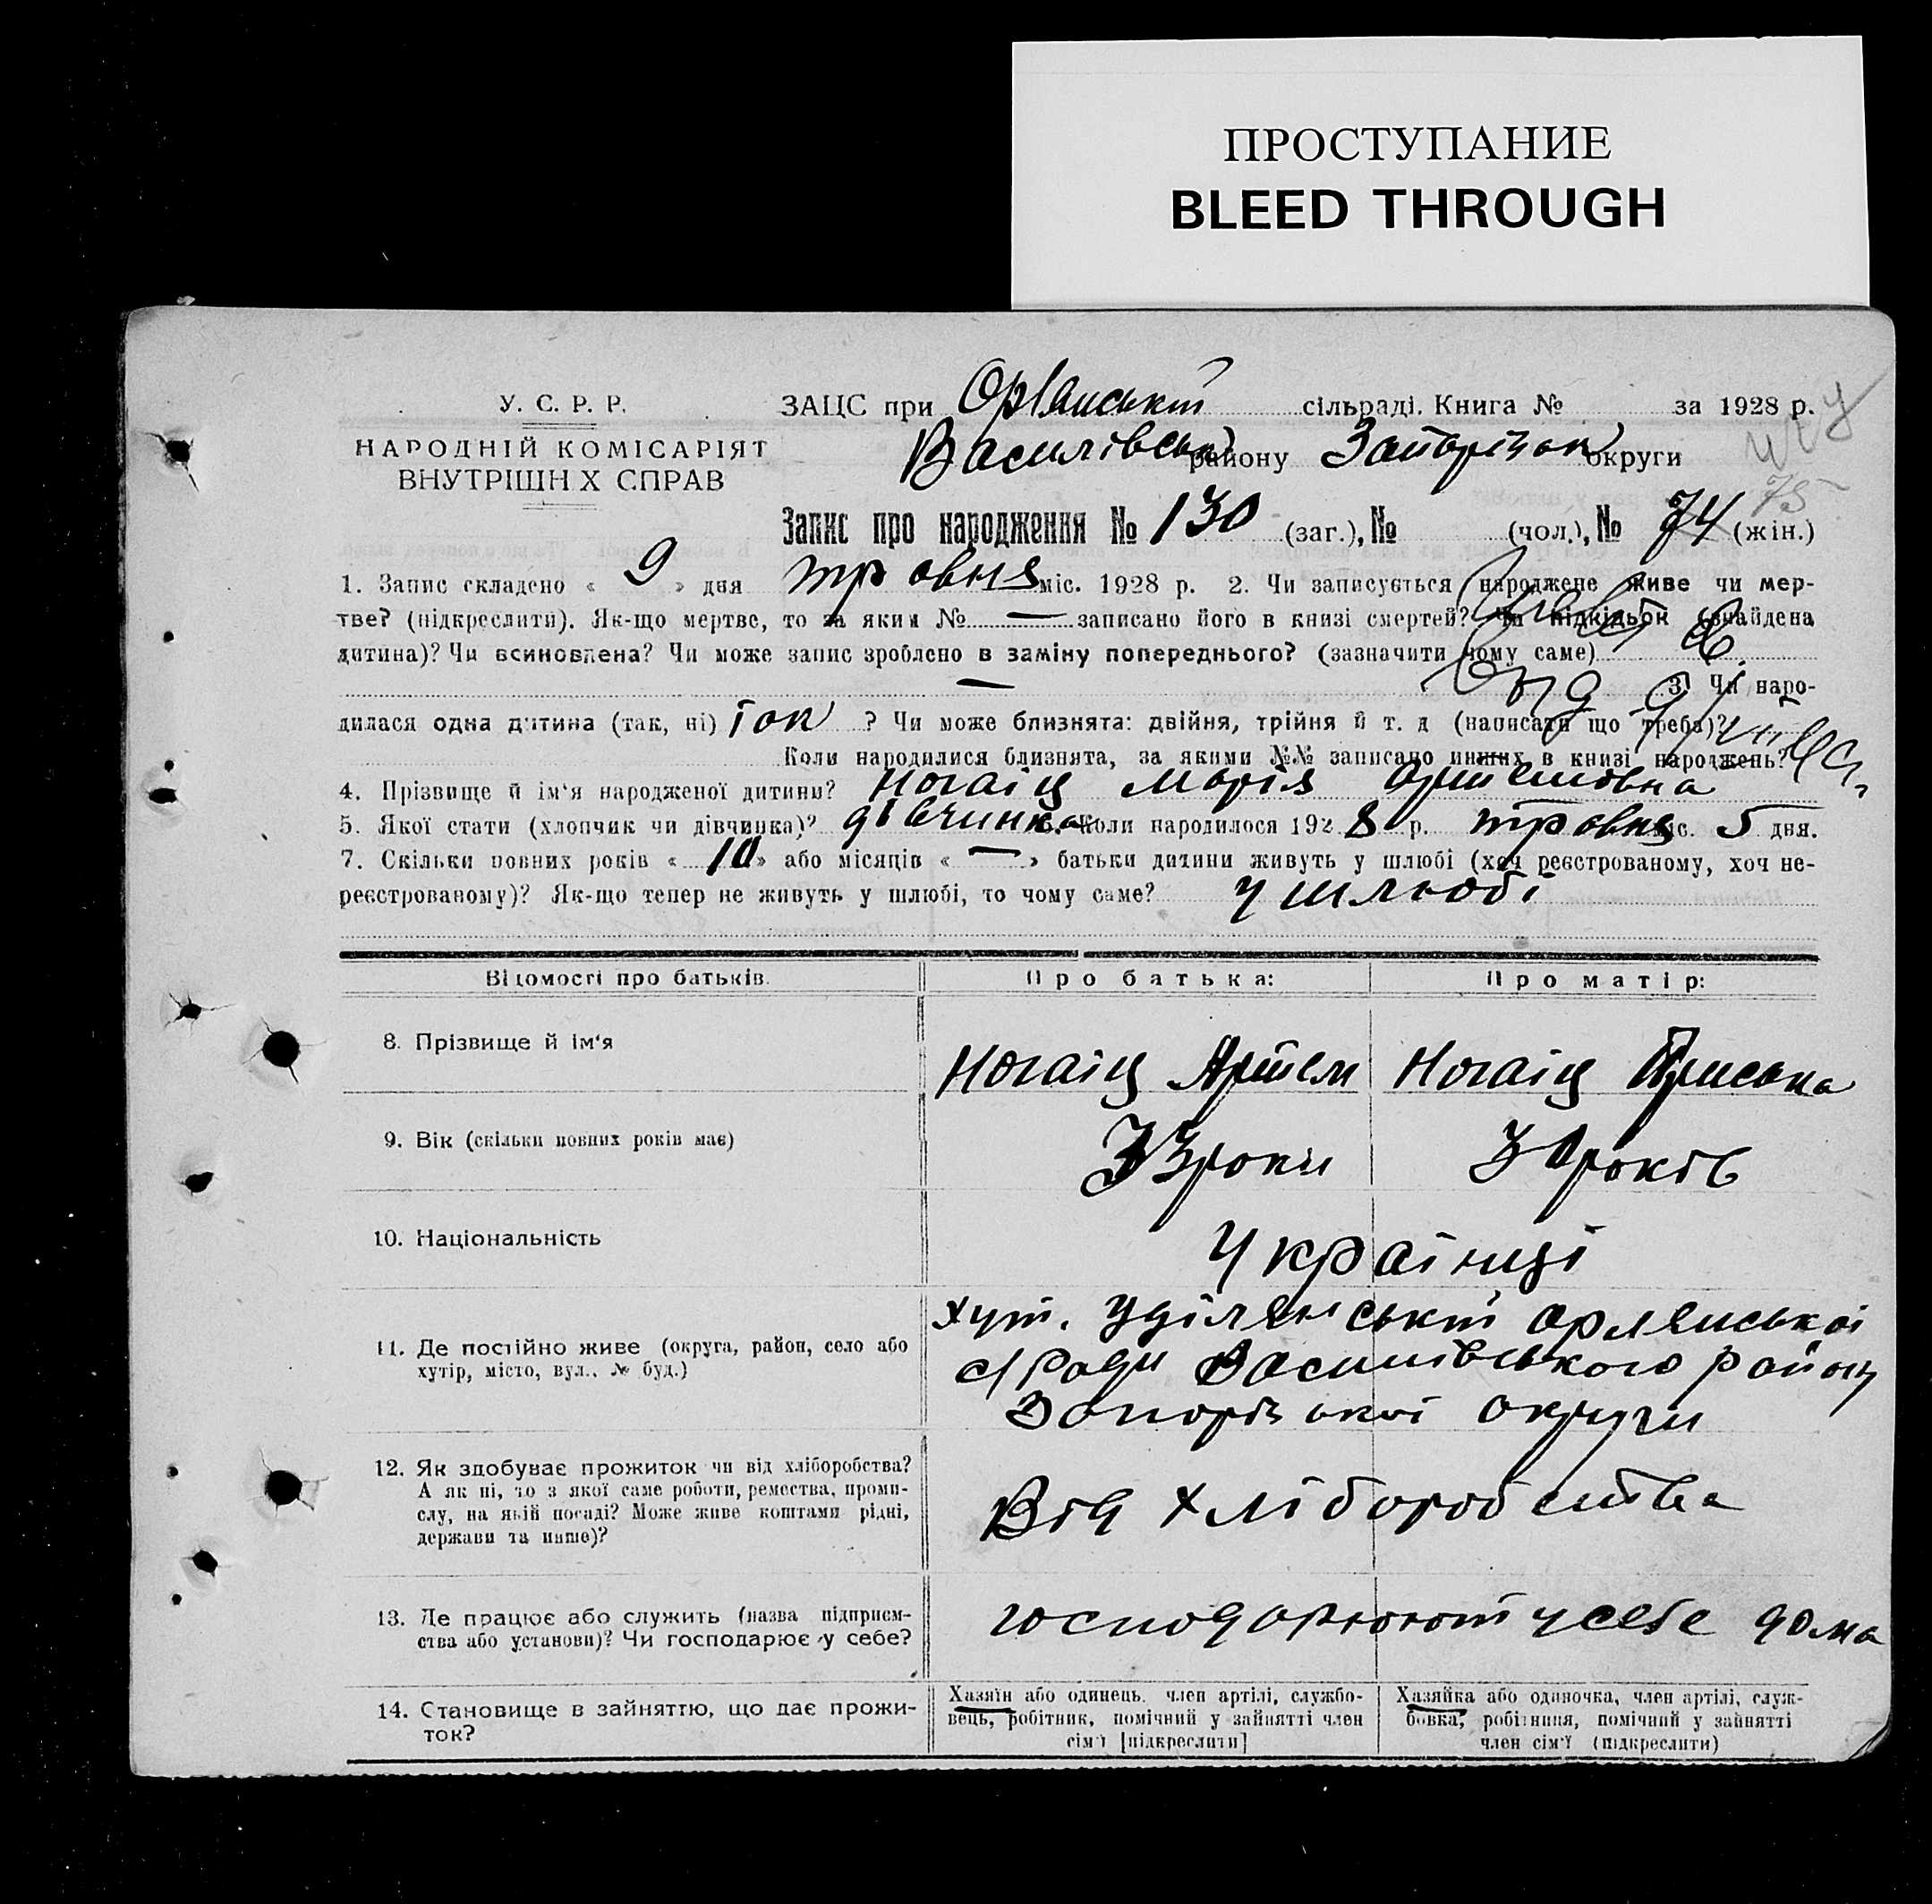 ПРОСТУПАНИЕ
BLEED THROUGH
У. С. Р. Р.
НАРОДНІЙ КОМІСАРІЯТ
ВНУТРІШН Х СПРАВ
ЗАЦС при Орлянській сільраді. Книга № за 1928 р.
Василівськ району Запорізьк округи
75
Запис про народження № 130 (заг.), № (чол.), № 74 (жін.)
1. Запис складено « 9 » дня травня міс. 1928 р. 2. Чи записується народжене живе чи мер-
тве? (підкреслити). Як-що мертве, то за яким № — записано його в книзі смертей? Чи підкідьок (знайдена
дитина)? Чи всиновлена? Чи може запис зроблено в заміну попереднього? (зазначити чому саме)
— 3. Чи наро-
дилася одна дитина (так, ні) так ? Чи може близнята: двійня, трійня й т. д (написати що треба)?
Коли народилися близнята, за якими №№ записано инших в книзі народжень?
4. Прізвище й ім'я народженої дитини? Ногаіц Марія Артемовна
5. Якої статі (хлопчик чи дівчинка)? дівчинка 6. Коли народилося 1928 р. травня міс. 5 дня.
7. Скільки повних років « 10 » або місяців « — » батьки дитини живуть у шлюбі (хоч реєстрованому, хоч не-
реєстрованому)? Як-що тепер не живуть у шлюбі, то чому саме? у шлюбі
Відомості про батьків. Про батька: Про матір:
8. Прізвище й ім'я Ногаіц Артем Ногаіц Приська
9. Вік (скільки повних років має) 33 роки 30 років
10. Національність Українці
11. Де постійно живе (округа, район, село або
хутір, місто, вул., № буд.)
хут. Уділянський Орлянськоі
с/Ради Василівського району
Запорізькоі округи
12. Як здобуває прожиток чи від хліборобства?
А як ні, то з якої саме роботи, ремества, проми-
слу, на якій посаді? Може живе коштами рідні,
держави та инше)?
Від хліборобства
13. Де працює або служить (назва підприєм-
ства або установи)? Чи господарює у себе?
господарюють у себе дома
14. Становище в зайняттю, що дає прожи-
ток?
Хазяїн або одинець, член артілі, службо-
вець, робітник, помічний у зайнятті член
сім'ї [підкреслити]
Хазяйка або одиночка, член артілі, служ-
бовка, робітниця, помічний у зайнятті
член сім'ї (підкреслити)